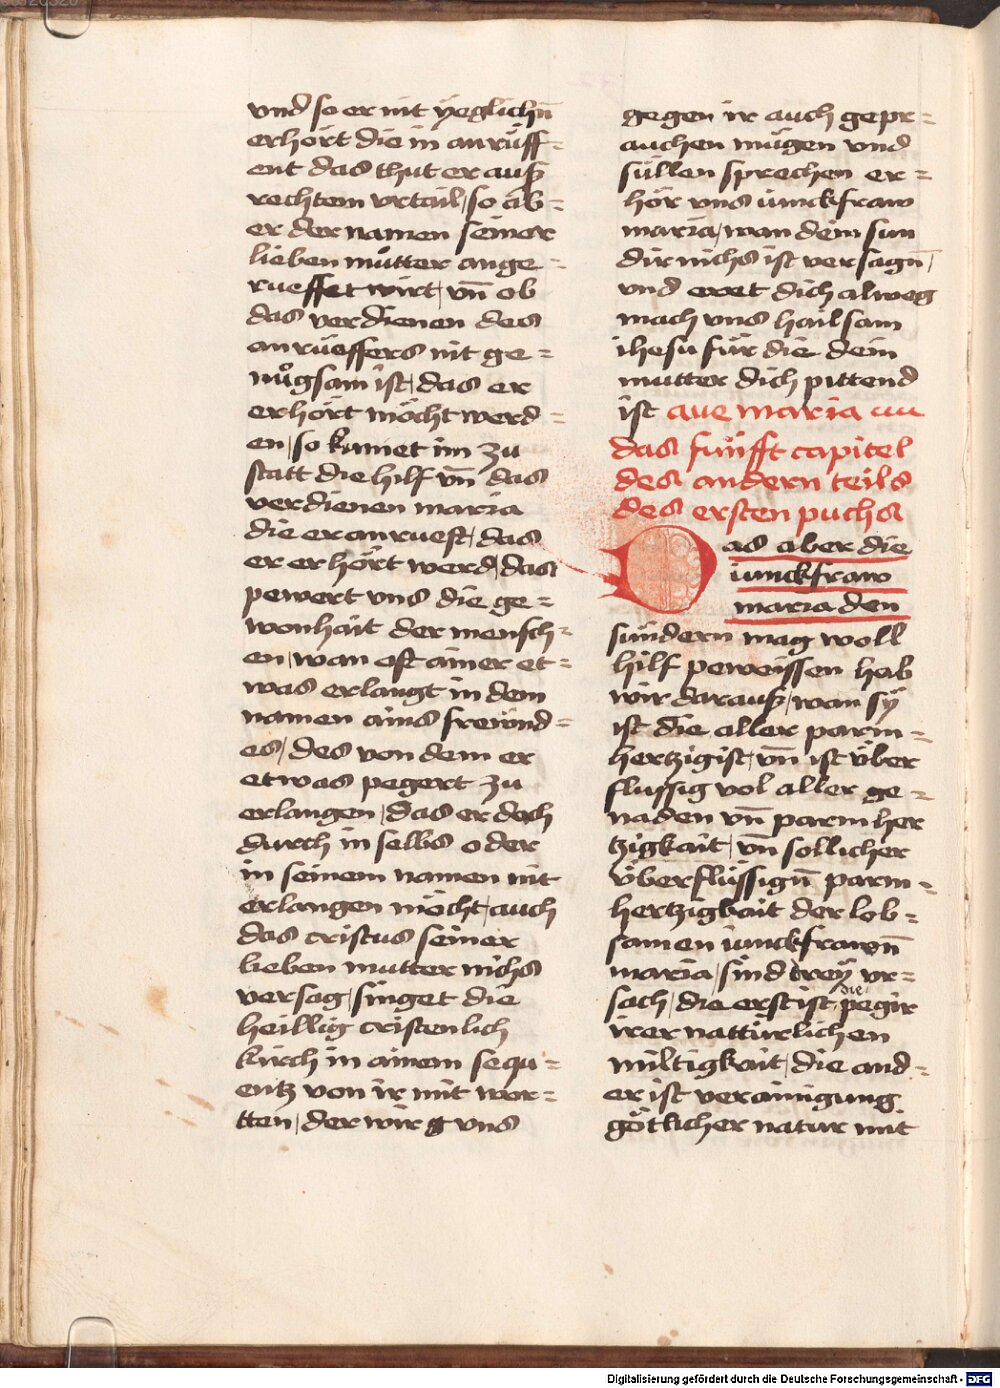 und so er nit yeglichn̄
erhört die in anrüff=
ent das thut er auß
rechtem vrtail / so ab=
er der namen seiner
lieben mutter ange=
rueffet wirt / vn̄ ob
das verdienen des
anrüeffers nit ge=
nůgsam ist / das er
erhört möcht werd=
en / so kumet im zu
statt die hilf vn̄ das
verdienen maria
die er anruest / das
er erhört werd / das
pewert vns die ge=
wonhait der mensch=
en / wan oft ainer et=
was erlangt in dem
namen ains freünd=
es / des von dem er
etwas pegert zu
erlangen / das er doch
durch in selbs oder
in seinem namen nit
erlangen möcht / auch
das cristus seiner
lieben mutter nichs
versag / singet die
heillig cristenlich
kirch in ainem sequ=
entz von ir mit wor=
tten / der wir g vns
gegen ir auch gepr=
auchen mügen vnd
süllen sprechen er=
hör vns iunckfraw
maria / wan dein sun
dir nichs ist versagn̄ /
vnd eret dich alweg
mach vns hailsam
ihesu für die dein
mutter dich pittend
ist aue maria
das fünfft capitel
des andern teils
des ersten puchs
Das aber die
iunckfraw
maria den
sündern mag woll
hilf peweissen hab
wir darauß / wan sy
ist die aller parm=
hertzigist / vn̄ ist über
flussig vol aller ge=
naden vn̄ parmher
tzigkait / vn̄ sollicher
überflüssign̄ parm=
hertzigkait der lob=
samen iunckfrawn̄
maria / sind drey vr=
sach / die erst ist die pegir
irer nattürlichen
miltigkait / die and=
er ist verainigung
götlicher natur mit
Digitalisierung gefördert durch die Deutsche Forschungsgemeinschaft - DFG